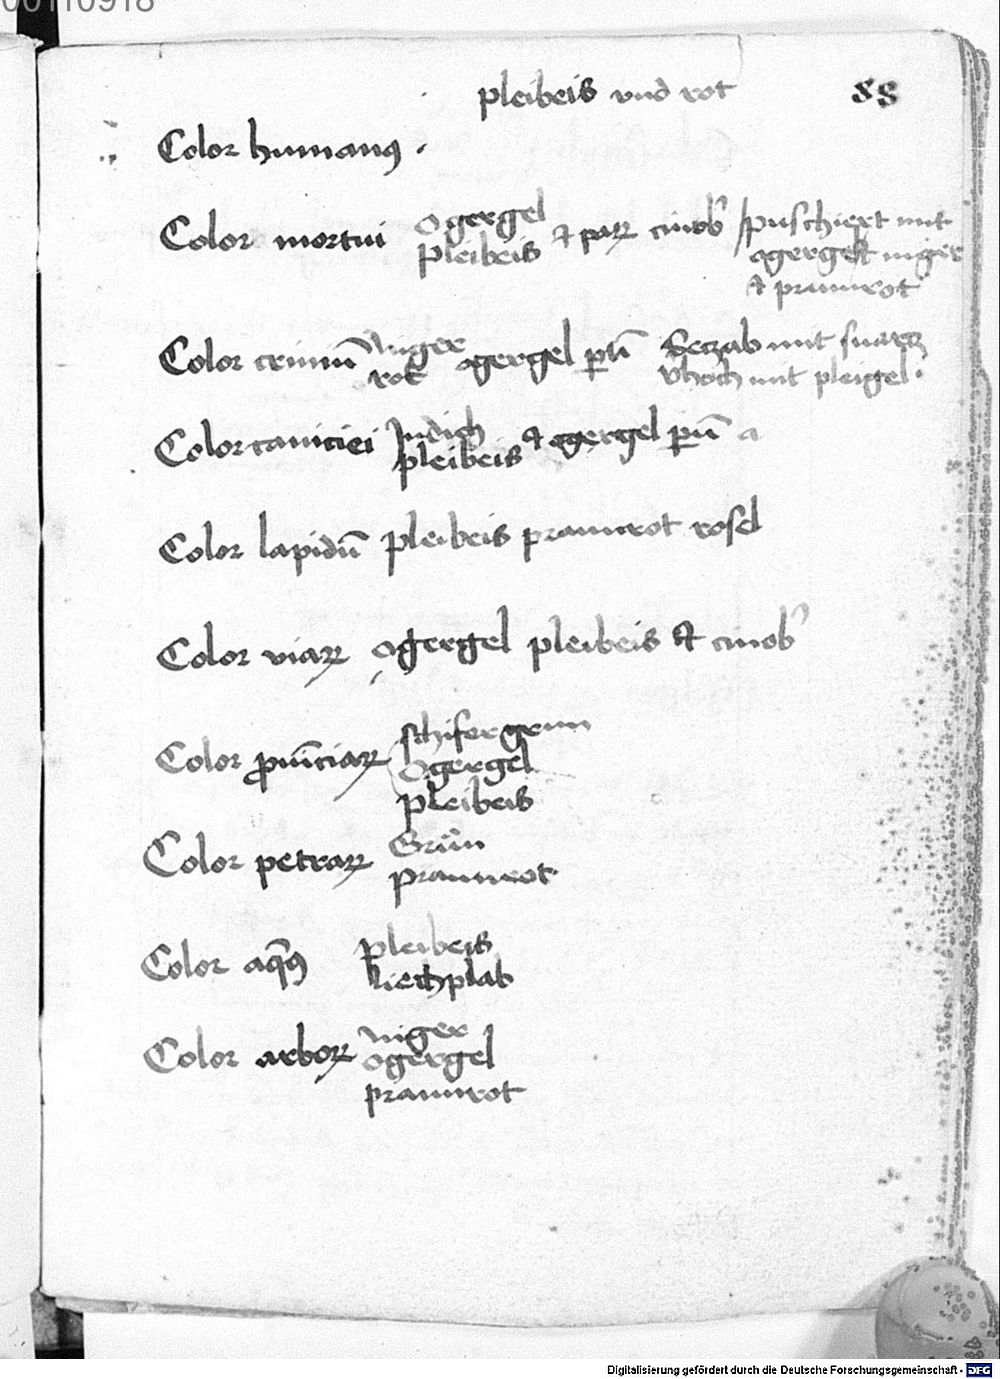 00110918
pleibeis vnd rot
88
Color humanꝰ .
Color mortui ogergel pleibeis et parꝝ cinobꝰ puschiert mit ogergel niger et praunrot
Color criniū Niger rot ogergel ptī mit suarcz vhoch mit pleigel .
Color caniciei Indich pleibeis et ogergel pū a
Color lapidū pleibeis praunrot rosel
Color viarꝝ ogergel pleibeis et cinobꝰ
Color ꝓuīciarꝝ schifergrun
ogergel
pleibeis
Color petrarꝝ Grün
praunrot
Color aq̄ꝰ pleibeis
liechplab
Color arborꝝ niger
ogergel
praunrot
Digitalisierung gefördert durch die Deutsche Forschungsgemeinschaft - DFG